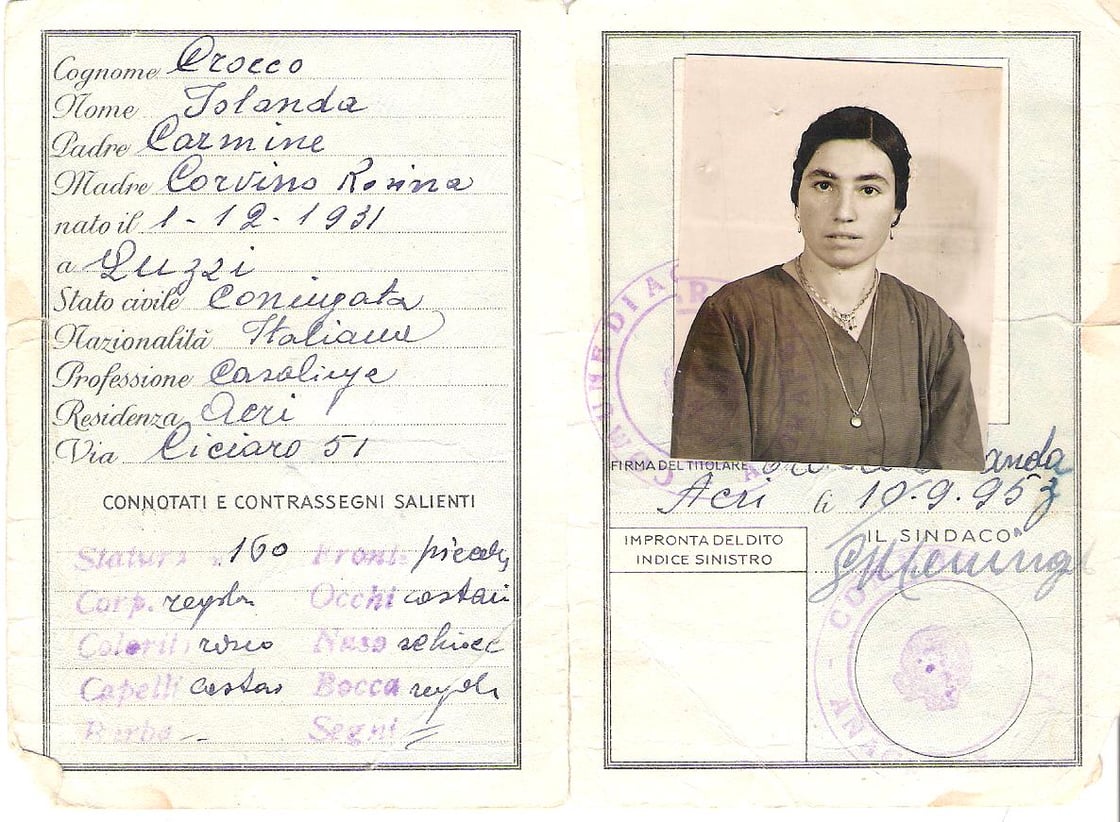 Cognome Crocco
Nome Iolanda
Padre Carmine
Madre Corvino Rosina
nato il 1-12-1931
a Luzzi
Stato civile Coniugata
Nazionalità Italiana
Professione Casalinga
Residenza Acri
Via Ciciaro 51
CONNOTATI E CONTRASSEGNI SALIENTI
Statura 160 Fronte piccola
Corp. regolr Occhi castani
Colorito roseo Naso schiacc
Capelli castani Bocca regolr
Barba - Segni =
COMUNE DI AC
FIRMA DEL TITOLARE anda
Acri li 10.9.953
IMPRONTA DEL DITO
INDICE SINISTRO
IL SINDACO